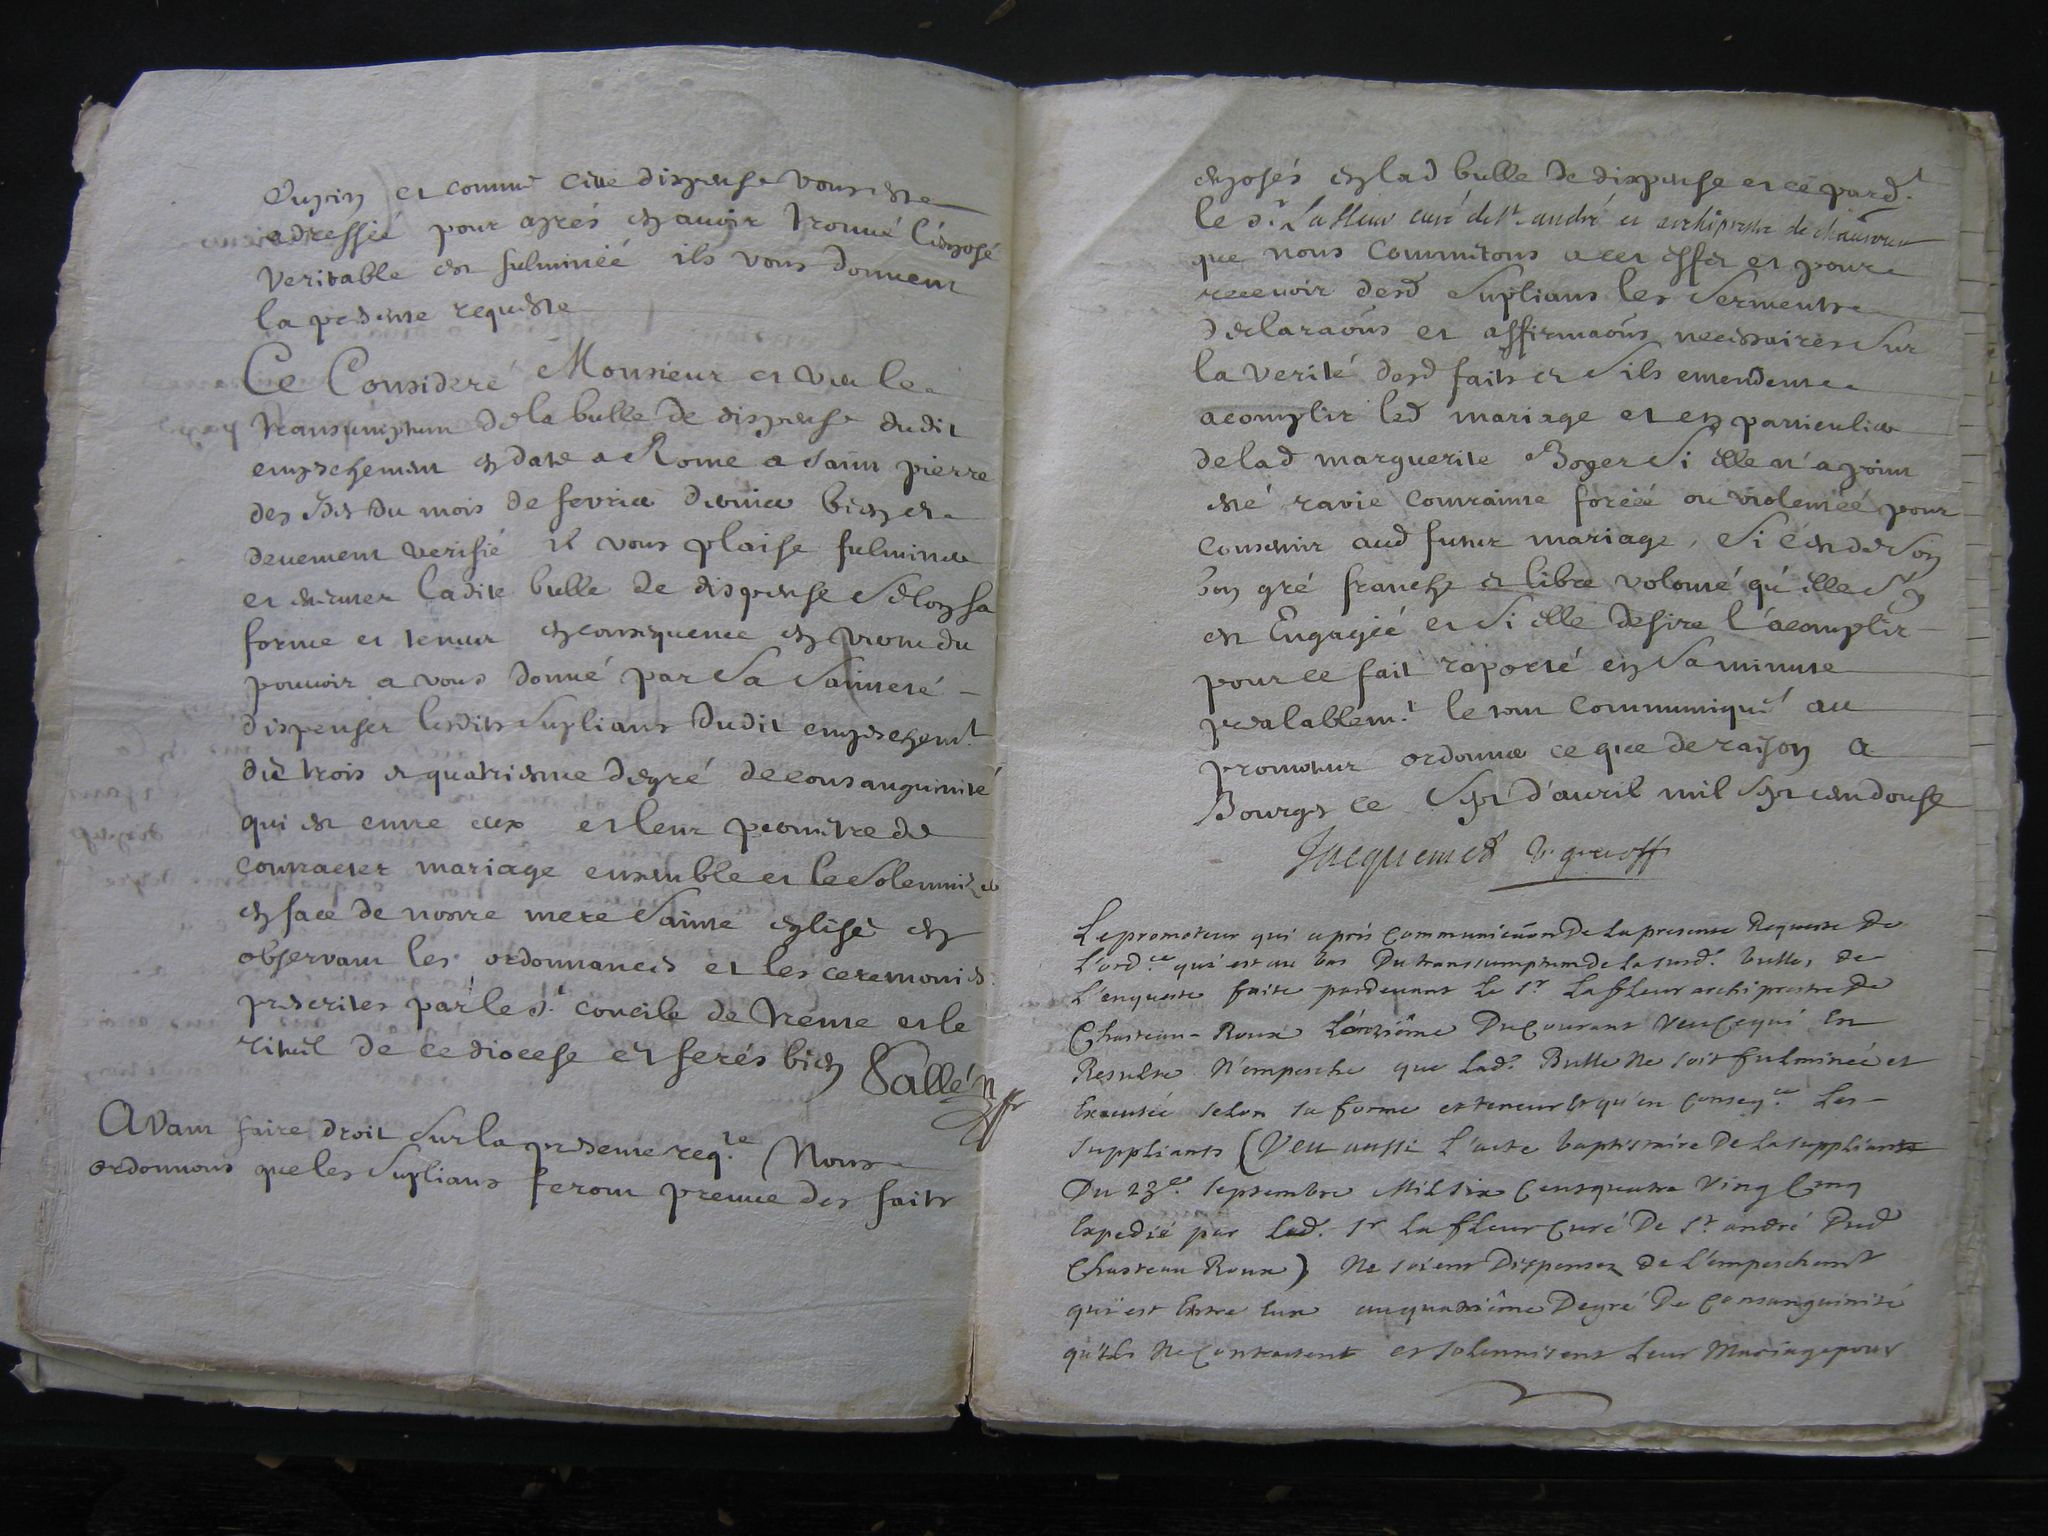 et comme cette dispense vous este
adressée pour après en avoir trouvé l'éxposé
veritable est fulminéé ils vous donnent
la presente requeste
Ce Consideré Monsieur et veu le
transumptum de la bulle de dispense dudit
empeschement en date a Rome a saint pierre
des Ides du mois de fevrier dernier bien et
deuement verifié il vous plaise fulminer
et enteriner ladite bulle de dispense Selon sa
forme et teneur en consequence en vertu du
pouvoir a vous donné par Sa Sainteté
dispenser lesdits Suplians dudit empeschemt
du trois et quatriesme degré de consanguinité
qui est entre eux et leur permettre de
contracter mariage ensemble et le Solemniser
en face de nostre mere Sainte eglise en
observant les ordonnances et les ceremonies
prescrites par le st concile de trente et le
rituel de ce diocese et ferés bien Sallé
Avant faire droit Sur la presente reqte Nous
ordonnons que les Suplians feront preuve des faits
exposés en lad bulle de dispense et ce pardt
le sr Lafleur curé de st andré et archiprestre de chaûroux
que nous Commettons a cet effet et pour
recevoir desd Suplians les Serments
declaraôns et affirmaôns necessaires Sur
la verité desd faits et S'ils entendent
acomplir led mariage et en particulier
de lad marguerite Boyer Si elle n'a point
esté ravie contrainte forcéé ou violentéé pour
consentir aud futur mariage, Si c'est de Son
bon gré franche et libre volonté qu'elle S'y
est Engagéé et Si elle desire l'acomplir
pour ce fait raporté en Sa minute
prealablemt le tout Communiqué au
promoteur ordonner ce que de raison A
Bourges ce Sept d'avril mil Sept cent douse
Jacquemet v. g. et off
Le promoteur qui a pris Communicaôn De La presente Requeste De
L'ordce qui est au bas Du transumptum de La susd. bulle, de
L'enqueste faite pardevant Le sr Lafleur archiprestre De
Chasteau-Roux L'onzième Du Courant veu Ce qui En
Resulte N'empesche que Lad. Bulle Ne soit fulminéé et
Executéé selon sa forme et teneur Et qu'en Conseqce Les
suppliants (Veu aussi L'acte baptistaire De La suppliante
Du 23e. septembre Mil Six Cents quatre Ving Cinq
Expedié par Led. sr Lafleur Curé De st andré Dud
Chasteau Roux) Ne soient Dispensez De L'empeschemt
qui est Entre Eux au quatrième Degré De Consanguinité
qu'ils Ne Contractent et solennisent Leur Mariage pour